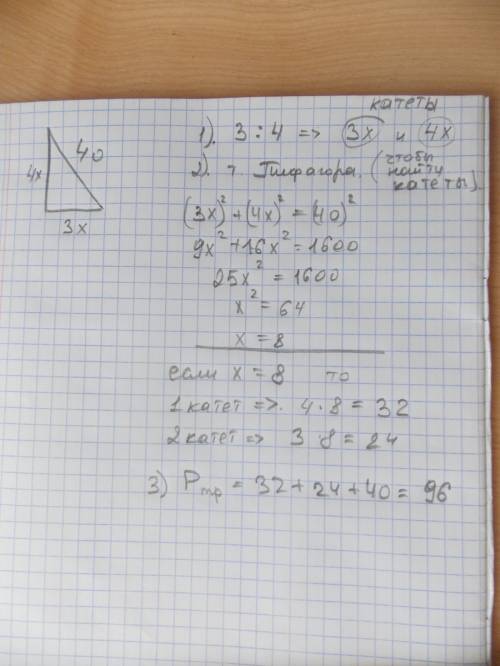 катеты
1). 3 : 4 => 3x и 4x
2). т. Пифагора. (чтобы найти катеты).
40
4x
3x
(3x)² + (4x)² = (40)²
9x² + 16x² = 1600
25x² = 1600
x² = 64
x = 8
если x = 8 то
1 катет =>. 4 · 8 = 32
2 катет => 3 · 8 = 24
3) Pтр = 32 + 24 + 40 = 96